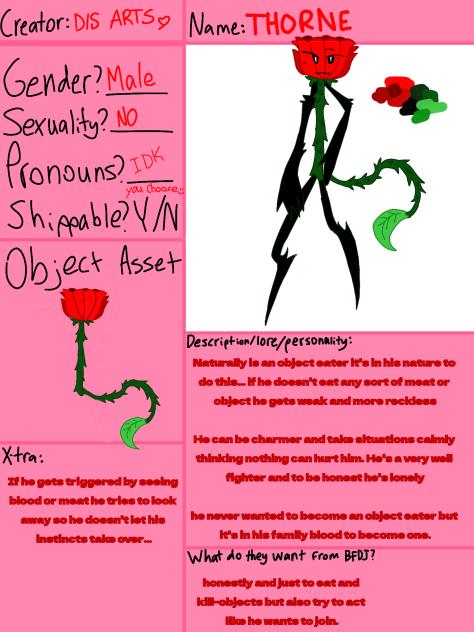 Creator: DIS ARTS♡
Name: THORNE
Gender? Male
Sexuality? NO
Pronouns? IDK
you choose:)
Shippable? Y/N
Object Asset
X-tra:
If he gets triggered by seeing
blood or meat he tries to look
away so he doesn't let his
instincts take over...
Description/lore/personality:
Naturally is an object eater it's in his nature to
do this... if he doesn't eat any sort of meat or
object he gets weak and more reckless
He can be charmer and take situations calmly
thinking nothing can hurt him. He's a very well
fighter and to be honest he's lonely
he never wanted to become an object eater but
it's in his family blood to become one.
What do they want from BFDJ?
honestly and just to eat and
kill-objects but also try to act
like he wants to join.